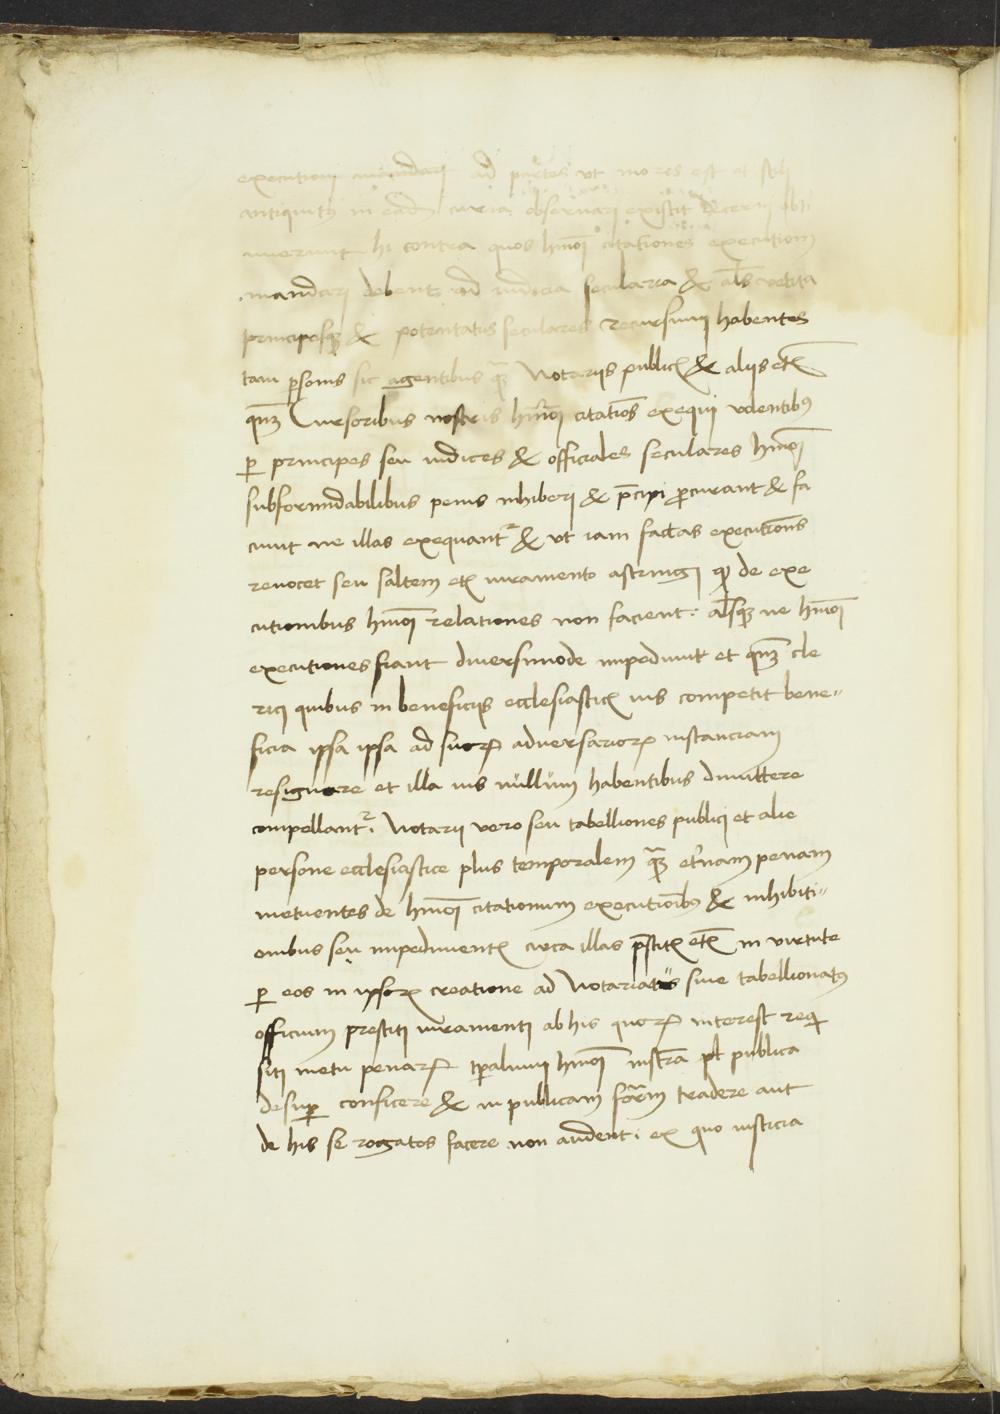 executioni mandari ad partes ut moris est et stili
antiquitꝰ in eadꝫ curia observari existit decerni obti
nuerunt hi contra quos hmōi citationes executioni
mandari debent ad iudicia secularia & als vetita
principesqꝫ & potentatus seculares recursum habentes
tam ꝑsonis sic agentibus qꝫ Notariis publicꝭ & aliis etꝭ
qnꝫ Cursoribus nostris hmōi citatiōs exequi volentibꝰ
ꝑ principes seu iudices & officiales seculares hmōi
subformidabilibus penis inhiberi & p̄cipi ꝓcurant & fa
ciunt ne illas exequantᷣ & ut iam factas executiōns
revocet seu saltem etꝭ iuramento astringi ꝙ de exe
cutionibus hmōi relationes non facient: alsqꝫ ne hmōi
executiones fiant diversimode impediunt et qnꝫ cle
rici quibus in beneficiis ecclesiasticꝭ ius competit bene-
ficia ipsa ipsa ad suorꝝ adversariorꝝ instanciam
resignare et illa ius nullum habentibus dimittere
compellantᷣ. Notarii vero seu tabelliones publici et alie
persone ecclesiastice plus temporalem qꝫ et̓nam penam
metuentes de hmōi citationum executioībꝰ & inhibiti-
onibus seu impedimentꝭ circa illas p̄stitꝭ etꝭ in virtute
ꝑ eos in ipsorꝝ creatione ad Notariatus sive tabellionatꝰ
officium prestiti iuramenti ab his quorꝝ interest reqi
siti metu penarꝝ tꝑalium hmōi instr̄a pl publica
desuꝑ conficere & in publicam forᷓm tradere aut
de his se rogatos facere non audent: ex quo iusticia